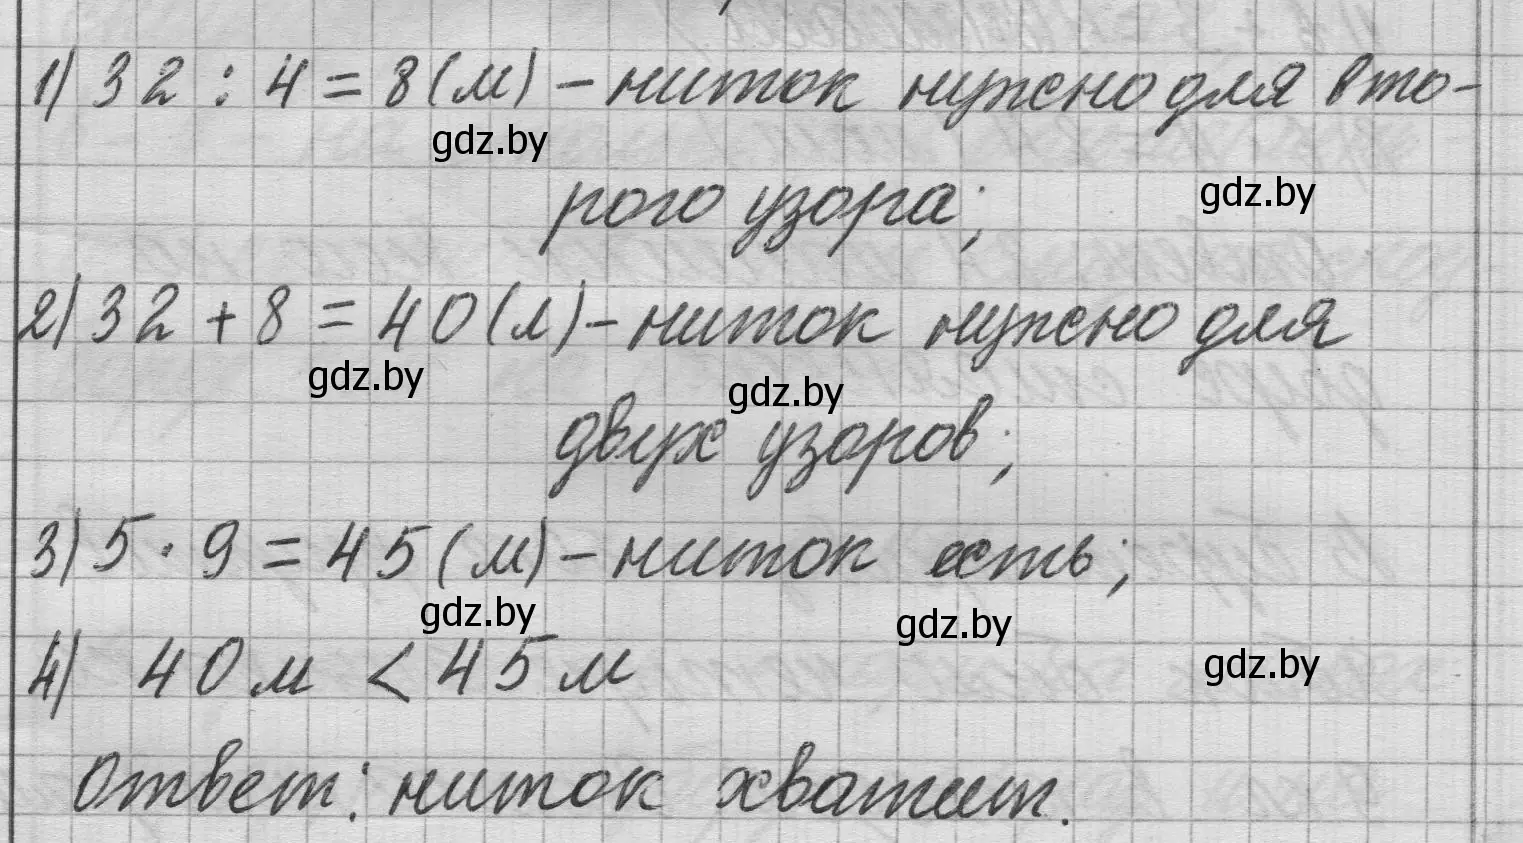 1) 32 : 4 = 8 (м) - ниток нужно для вто-
gdz.by
рого узора;
gdz.by
2) 32 + 8 = 40 (м) - ниток нужно для
gdz.by gdz.by
двух узоров;
3) 5 · 9 = 45 (м) - ниток есть;
gdz.by gdz.by
4) 40 м < 45 м
gdz.by
Ответ: ниток хватит.